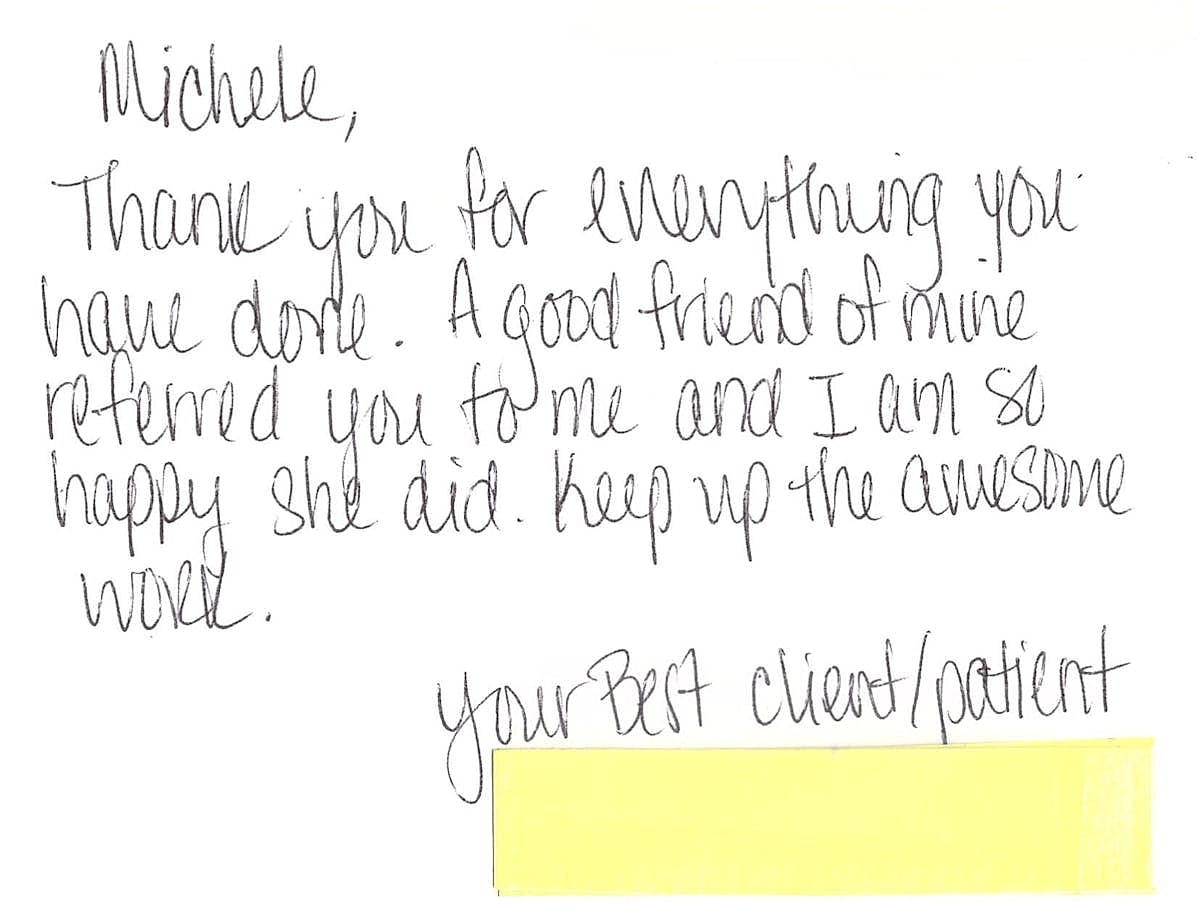 Michele,
Thank you for everything you
have done. A good friend of mine
referred you to me and I am so
happy she did. Keep up the awesome
work.
your Best client/patient